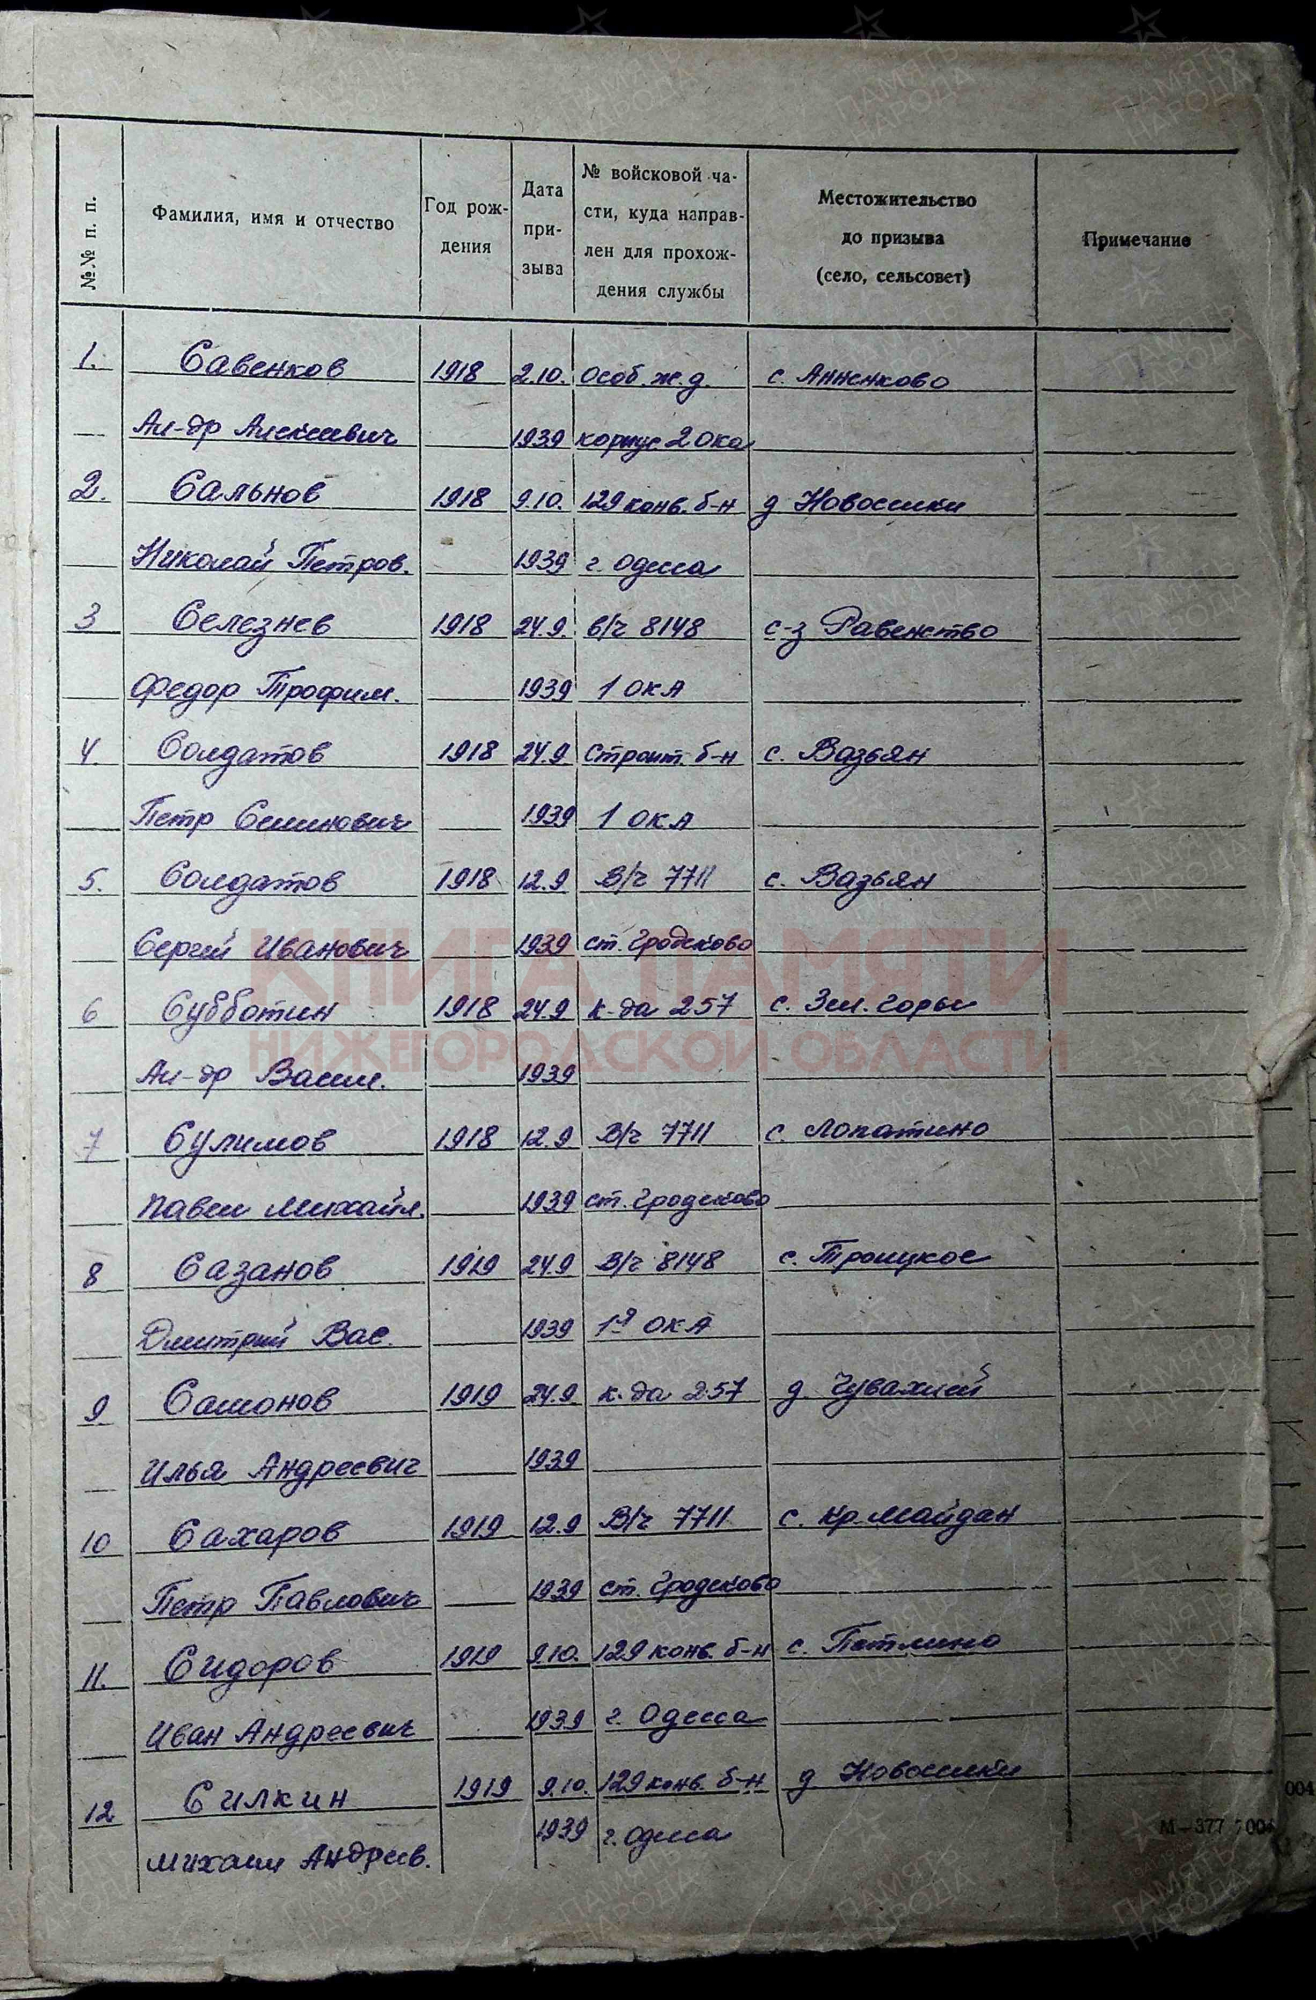 №№ п. п.
Фамилия, имя и отчество
Год рож-
дения
Дата
при-
зыва
№ войсковой ча-
сти, куда направ-
лен для прохож-
дения службы
Местожительство
до призыва
(село, сельсовет)
Примечание
1. Савенков 1918 2.10. особ. ж.д. с. Анненково
Ал-др Алексеевич 1939 корпус 2 ока
2. Сальнов 1918 9.10. 129 конв. б-н д Новоселки
Николай Петров. 1939 г. Одесса
3 Селезнев 1918 24.9. в/ч 8148 с-з Равенство
Федор Трофим. 1939 1 ОКА
4. Солдатов 1918 24.9 строит. б-н с. Вазьян
Петр Семенович 1939 1 ОКА
5. Солдатов 1918 12.9 В/ч 7711 с. Вазьян
Сергей Иванович 1939 ст. Гродеково
6 Субботин 1918 24.9 к-да 257 с. Зел. горы
Ал-др Васил. 1939
7 Сулимов 1918 12.9 В/ч 7711 с. Лопатино
Павел Михайл. 1939 ст. Гродеково
8 Сазанов 1919 24.9 В/ч 8148 с. Троицкое
Дмитрий Вас. 1939 1я ОКА
9 Самонов 1919 24.9 к-да 257 д
Илья Андреевич 1939
10 Сахаров 1919 12.9 В/ч 7711 с. Кр. Майдан
Петр Павлович 1939 ст. Гродеково
11. Сидоров 1919 9.10. 129 конв. б-н с. Петлино
Иван Андреевич 1939 г. Одесса
12 Силкин 1919 9.10. 129 конв. б-н д Новоселки
Михаил Андреев. 1939 г. Одесса
КНИГА ПАМЯТИ
НИЖЕГОРОДСКОЙ ОБЛАСТИ
ПАМЯТЬ
НАРОДА
004
М—377